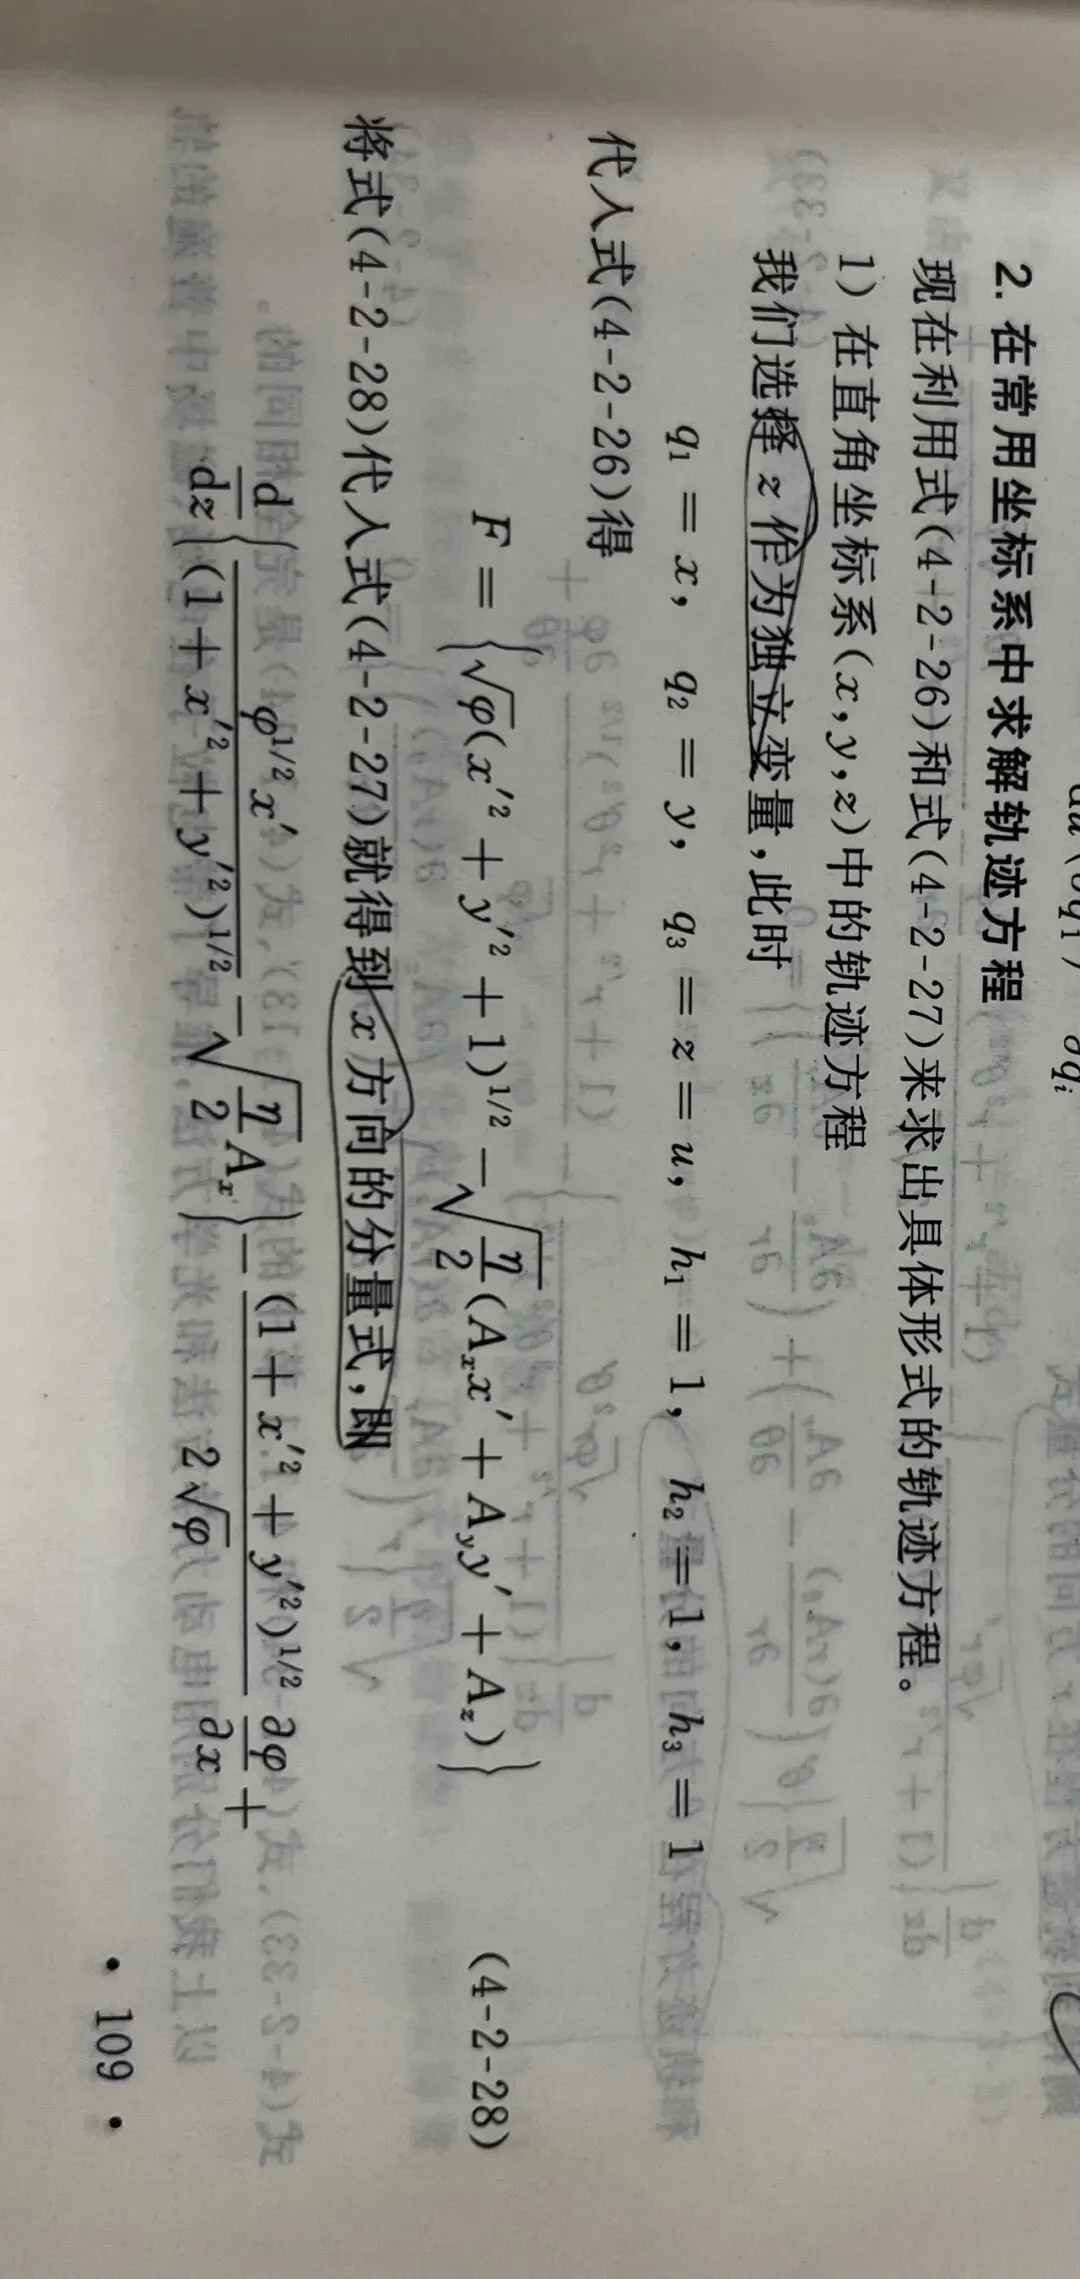 2. 在常用坐标系中求解轨迹方程
现在利用式(4-2-26)和式(4-2-27)来求出具体形式的轨迹方程。
1) 在直角坐标系(x,y,z)中的轨迹方程
我们选择 z 作为独立变量,此时
q₁ = x, q₂ = y, q₃ = z = u, h₁ = 1, h₂ = 1, h₃ = 1
代入式(4-2-26)得
F = {√φ(x′² + y′² + 1)^{1/2} − √(η/2)(Aₓx′ + A_y y′ + A_z)} (4-2-28)
将式(4-2-28)代入式(4-2-27)就得到 x 方向的分量式,即
d/dz{φ^{1/2}x′/(1 + x′² + y′²)^{1/2} − √(η/2)Aₓ} − (1 + x′² + y′²)^{1/2}/(2√φ) ∂φ/∂x +
• 109 •